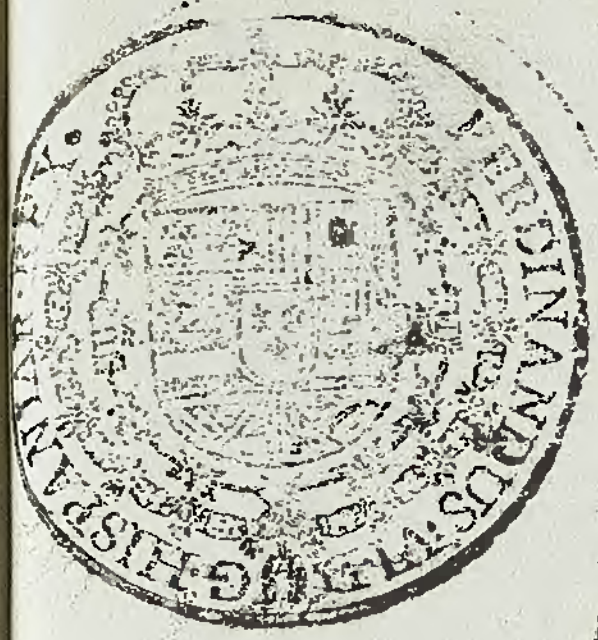 FERDINANDUS G HISPANIAR REX.